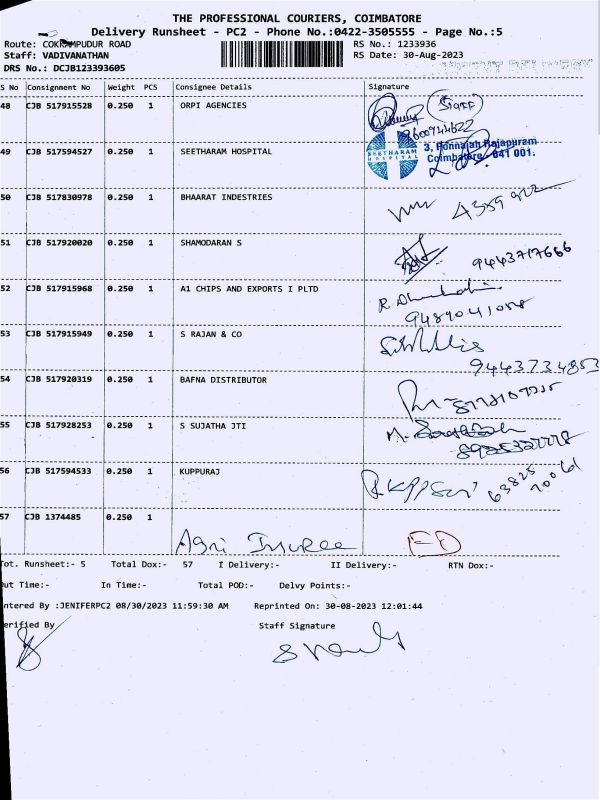 THE PROFESSIONAL COURIERS, COIMBATORE
Delivery Runsheet - PC2 - Phone No.:0422-3505555 - Page No.:5
Route: COKKAMPUDUR ROAD RS No.: 1233936
Staff: VADIVANATHAN RS Date: 30-Aug-2023
DRS No.: DCJB123393605
S No Consignment No Weight PCS Consignee Details Signature
48 CJB 517915528 0.250 1 ORPI AGENCIES
9600944622
49 CJB 517594527 0.250 1 SEETHARAM HOSPITAL
SEETHARAM HOSPITAL
3, Ponnaiah Rajapuram
Coimbatore - 641 001.
50 CJB 517830978 0.250 1 BHAARAT INDESTRIES
51 CJB 517920020 0.250 1 SHAMODARAN S
9443717666
52 CJB 517915968 0.250 1 A1 CHIPS AND EXPORTS I PLTD
53 CJB 517915949 0.250 1 S RAJAN & CO
9443734853
54 CJB 517920319 0.250 1 BAFNA DISTRIBUTOR
55 CJB 517928253 0.250 1 S SUJATHA JTI
56 CJB 517594533 0.250 1 KUPPURAJ
57 CJB 1374485 0.250 1
Agri
Tot. Runsheet:- 5 Total Dox:- 57 I Delivery:- II Delivery:- RTN Dox:-
Out Time:- In Time:- Total POD:- Delvy Points:-
ntered By :JENIFERPC2 08/30/2023 11:59:30 AM Reprinted On: 30-08-2023 12:01:44
erified By Staff Signature